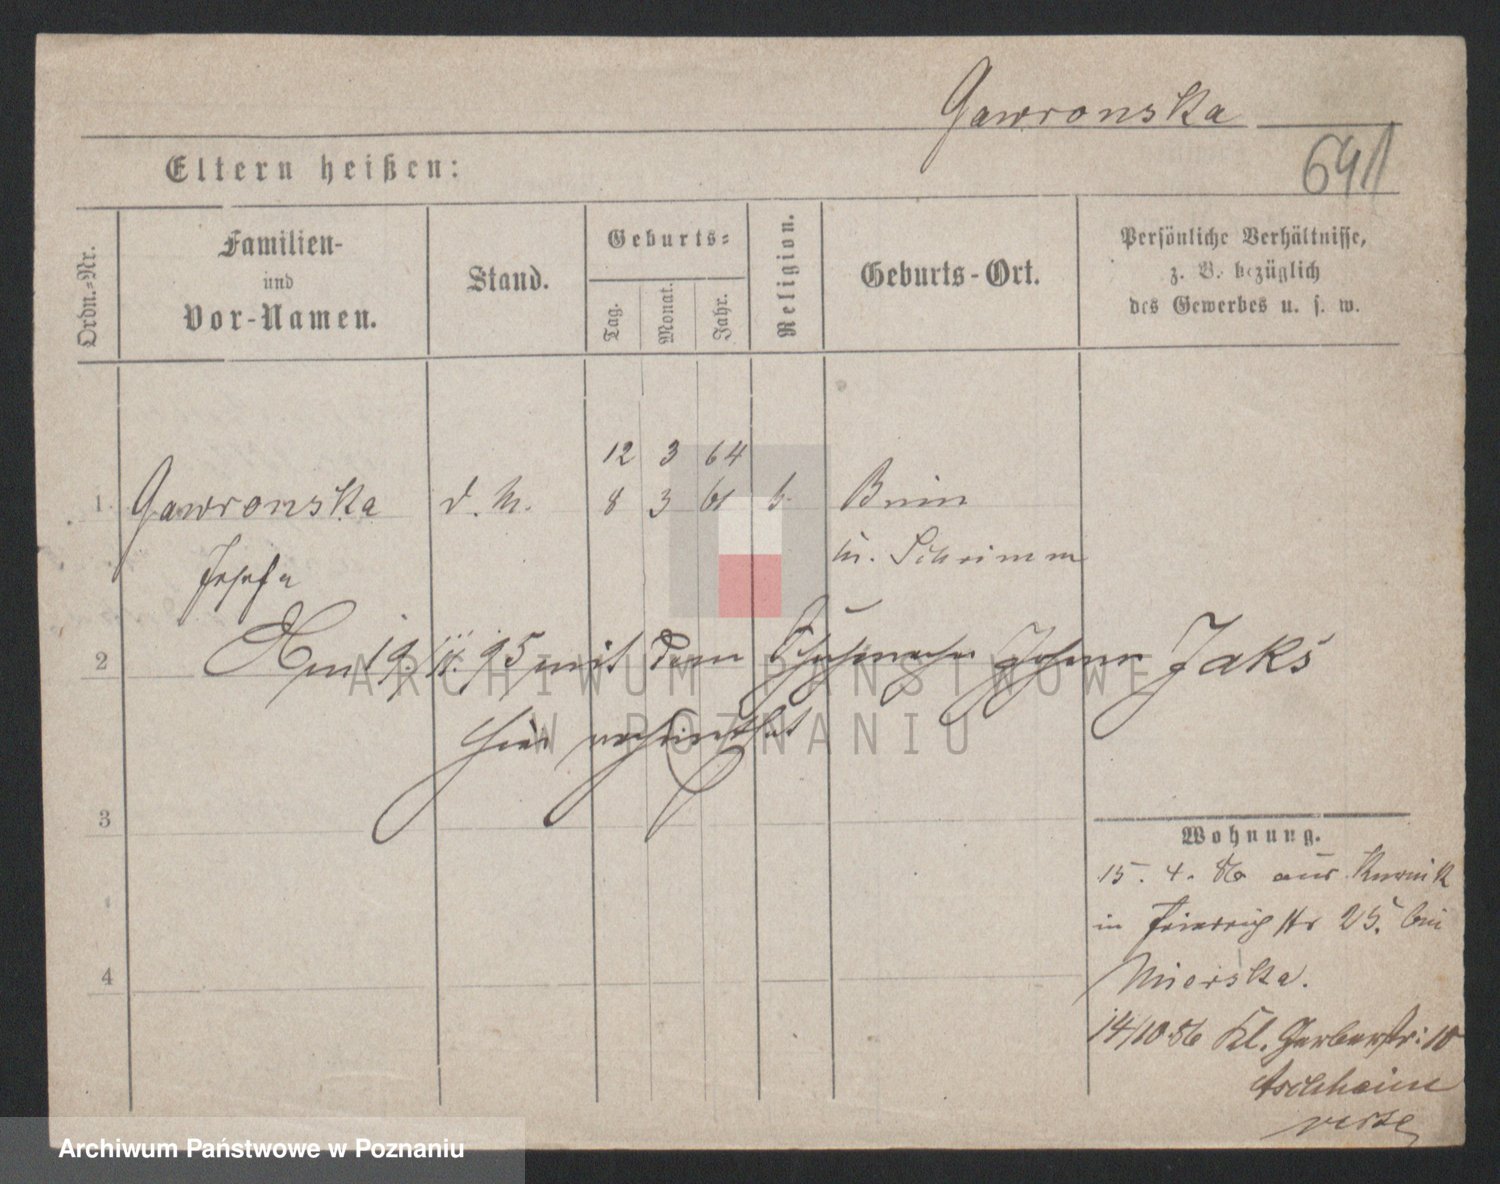 Gawronska
641
Eltern heißen:
Ordn.-Nr.
Familien-
und
Vor-Namen.
Stand.
Geburts-
Tag.
Monat.
Jahr.
Religion.
Geburts-Ort.
Persönliche Verhältnisse,
z. B. bezüglich
des Gewerbes u. s. w.
12 3 64
1. Gawronska d. M. 8 3 61 k. Bnin
Kr. Schrimm
Josefa
2 Am 19/11. 95 mit dem Schuhmacher Johann Jaks
hier verheirathet
ARCHIWUM PAŃSTWOWE
W POZNANIU
3
Wohnung.
15. 4. 86 aus Kurnik
in Friedrichstr 25. bei
Mierska.
4
14/10 86 Kl. Gerberstr: 10
Aschheim
verte
Archiwum Państwowe w Poznaniu